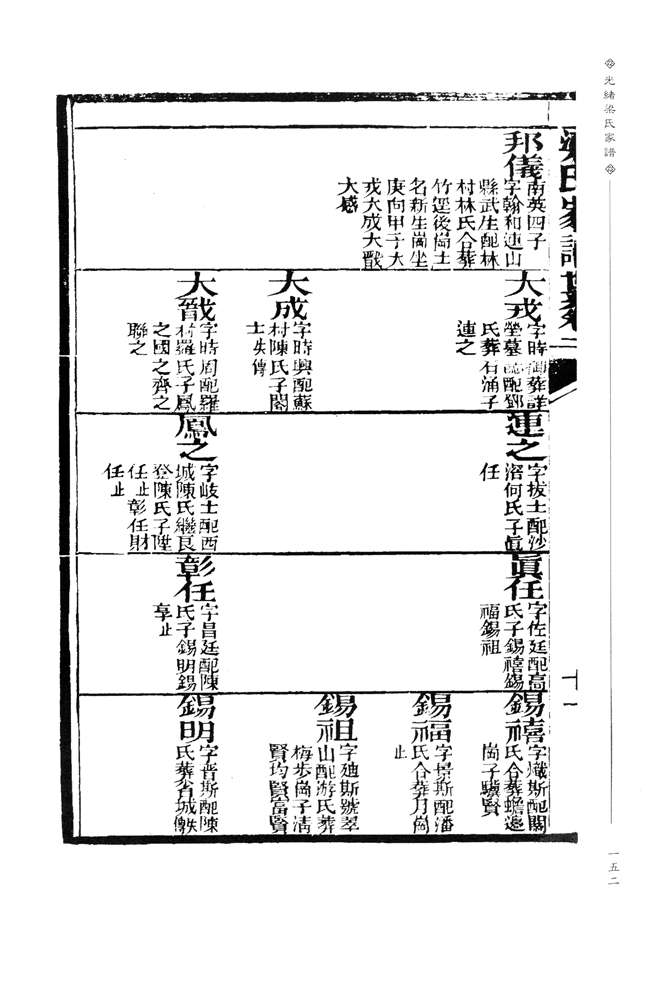 光緒梁氏家譜
一五二
梁氏家譜世系卷二
十一
邦儀
南英四子
字翰和連山
縣武生配林
村林氏合葬
竹逕後崗土
名新生崗坐
庚向甲子大
戎大成大戩
大感
大戎
字時 葬詳
塋墓 配鄧
氏葬石涌子
連之
大成
字時興配蘇
村陳氏子閣
士失傳
大戩
字時周配羅
村羅氏子鳳
之國之齊之
聯之
連之
字拔士配沙
溶何氏子眞
任
鳳之
字岐士配西
城陳氏繼良
登陳氏子陞
任止彰任財
任止
眞任
字佐廷配高
氏子錫禧錫
福錫祖
彰任
字昌廷配陳
氏子錫明錫
享止
錫禧
字熾斯配關
氏合葬蟾 
崗子驥賢
錫福
字景斯配潘
氏合葬月崗
止
錫祖
字廸斯號翠
山配游氏葬
梅步崗子清
賢均賢富賢
錫明
字晋斯配陳
氏葬省城